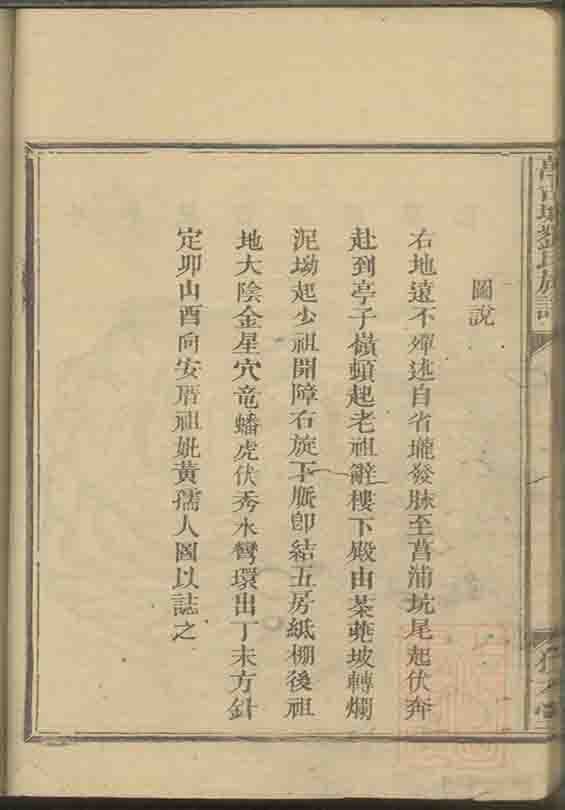 圖說
右地遠不殫述自省壠發脉至菖蒲坑尾起伏奔
赴到亭子嶺頓起老祖辭樓下殿由茶蓰坡轉爛
泥坳起少祖開障右旋下脈卽結五房紙棚後祖
地大陰金星穴竜蟠虎伏秀水彎環出丁未方針
定卯山酉向安厝祖妣黃孺人圖以誌之
劉氏族譜